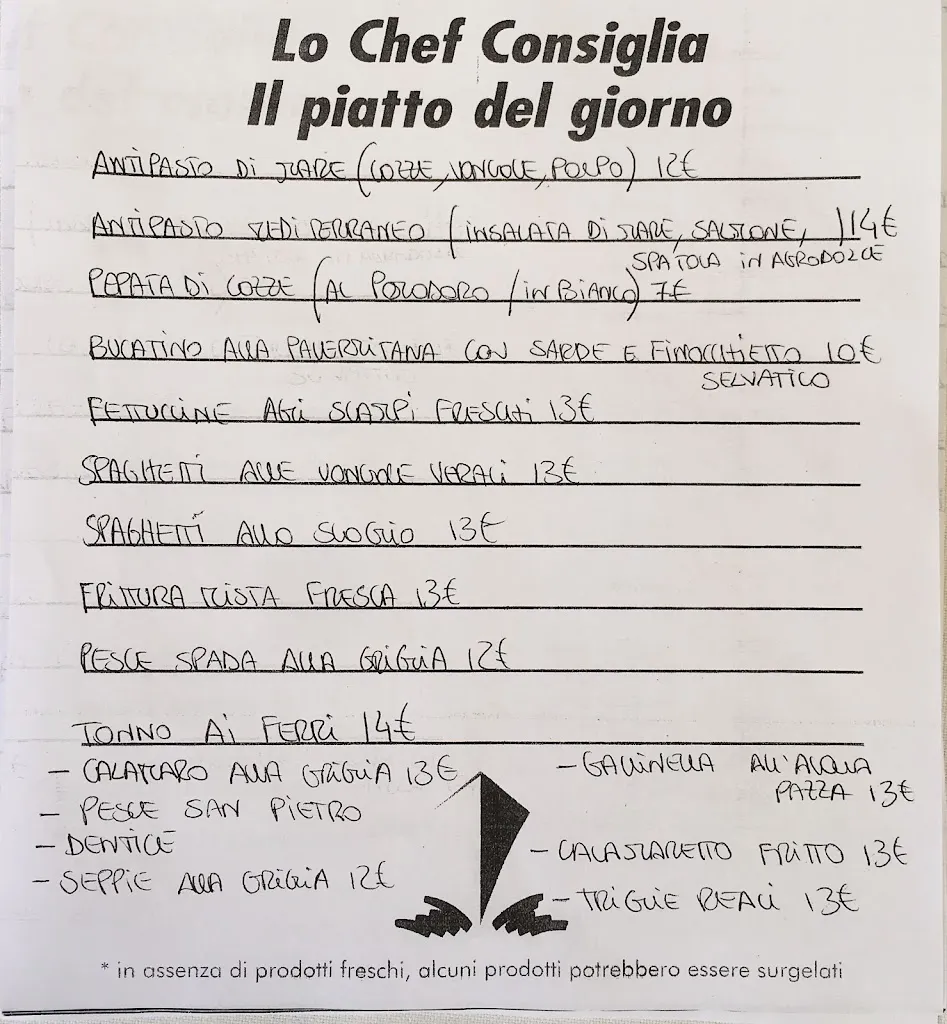 Lo Chef Consiglia
Il piatto del giorno
ANTIPASTO DI MARE (COZZE, VONGOLE, POLPO) 12€
ANTIPASTO MEDITERRANEO (INSALATA DI MARE, SALMONE, ) 14€
SPATOLA IN AGRODOLCE
PEPATA DI COZZE (AL POMODORO / IN BIANCO) 7€
BUCATINO ALLA PALERMITANA CON SARDE E FINOCCHIETTO 10€
SELVATICO
FETTUCCINE AGLI SCAMPI FRESCHI 13€
SPAGHETTI ALLE VONGOLE VERACI 13€
SPAGHETTI ALLO SCOGLIO 13€
FRITTURA MISTA FRESCA 13€
PESCE SPADA ALLA GRIGLIA 12€
TONNO AI FERRI 14€
- CALAMARO ALLA GRIGLIA 13€
- PESCE SAN PIETRO
- DENTICE
- SEPPIE ALLA GRIGLIA 12€
- GALLINELLA ALL'ACQUA
PAZZA 13€
- CALAMARETTO FRITTO 13€
- TRIGLIE REALI 13€
* in assenza di prodotti freschi, alcuni prodotti potrebbero essere surgelati